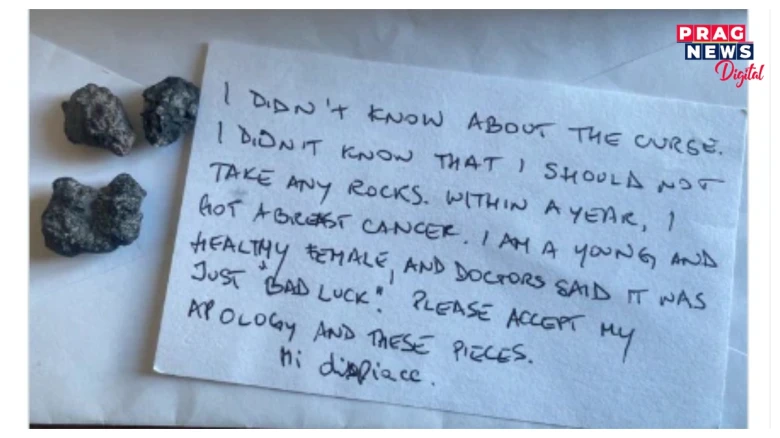 PRAG
NEWS
Digital
I DIDN'T KNOW ABOUT THE CURSE.
I DIDN'T KNOW THAT I SHOULD NOT
TAKE ANY ROCKS. WITHIN A YEAR, I
GOT A BREAST CANCER. I AM A YOUNG AND
HEALTHY FEMALE, AND DOCTORS SAID IT WAS
JUST "BAD LUCK". PLEASE ACCEPT MY
APOLOGY AND THESE PIECES.
Mi dispiace.